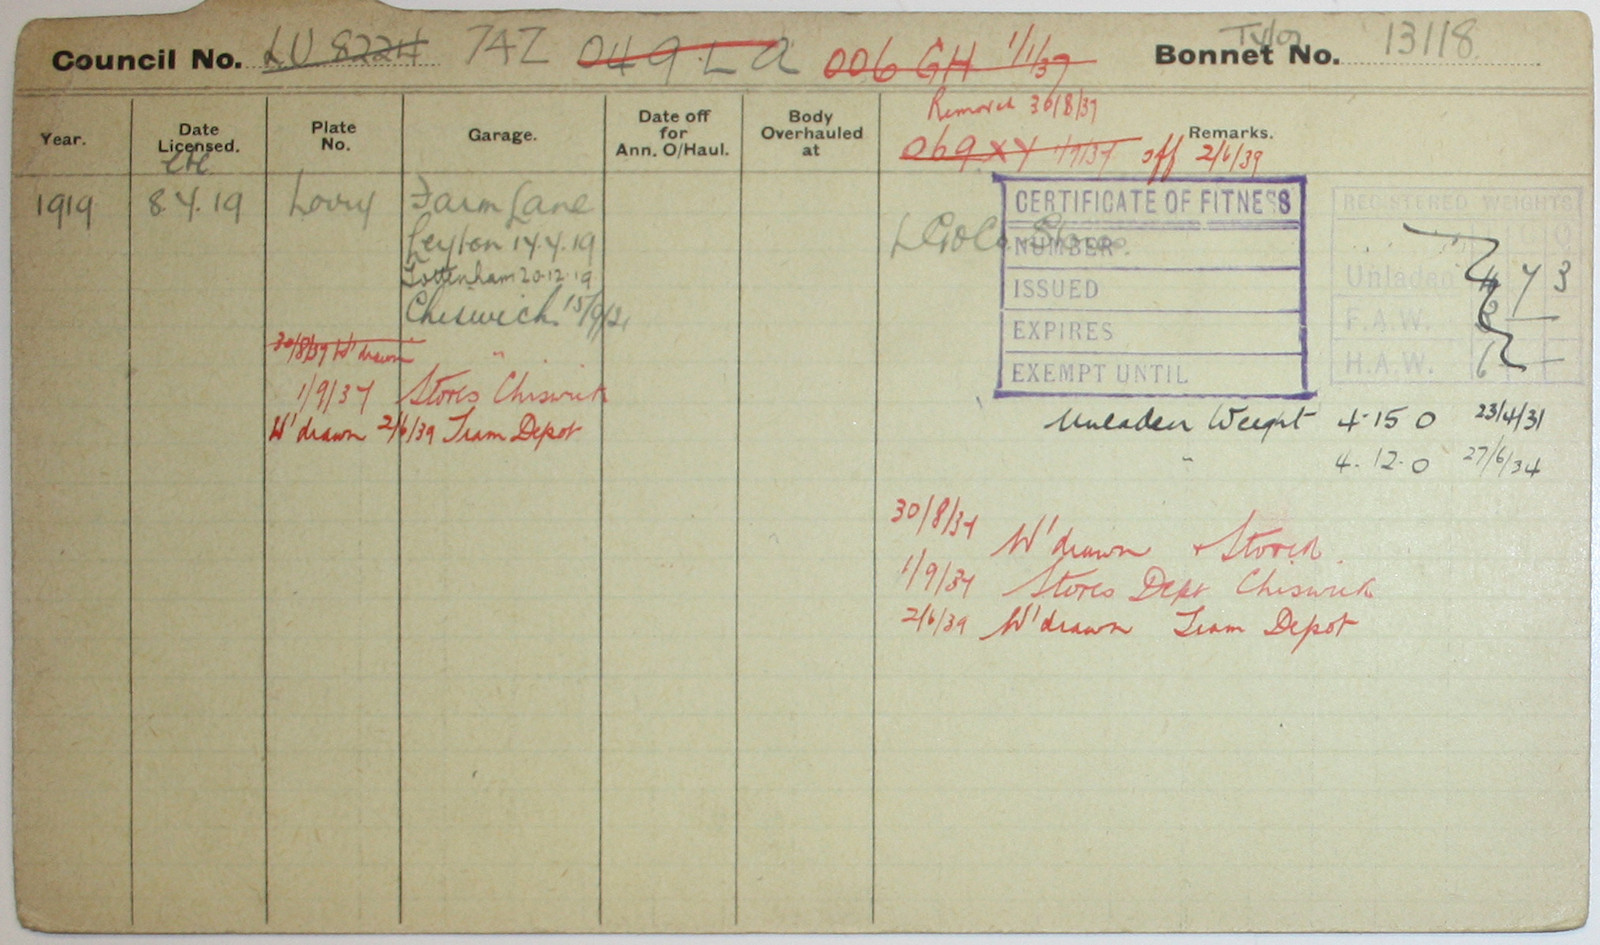 Council No. LU 8224 7AZ 049 LA 006 GH 1/1/37 Bonnet No. Tylor 13118
Removed 30/8/37
069 XY 1/9/37 off 2/6/39
Year. Date Licensed. Plate No. Garage. Date off for Ann. O/Haul. Body Overhauled at Remarks.
1919 8.4.19 Lorry Farm Lane
Leyton 14.4.19
Tottenham 20.12.19
Chiswick 15/9/21
30/8/37 W'drawn "
1/9/37 Stores Chiswick
W'drawn 2/6/39 Tram Depot
LGOCo. Stores
CERTIFICATE OF FITNESS
NUMBER
ISSUED
EXPIRES
EXEMPT UNTIL
REGISTERED WEIGHTS
Unladen 4 7 3
F.A.W.
H.A.W. 6 —
Unladen Weight 4-15 0 23/4/31
" 4.12.0 27/6/34
30/8/37 W'drawn & Stored.
1/9/37 Stores Dept Chiswick
2/6/39 W'drawn Tram Depot